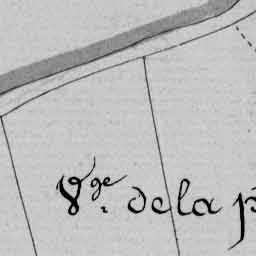 Vge. de la p